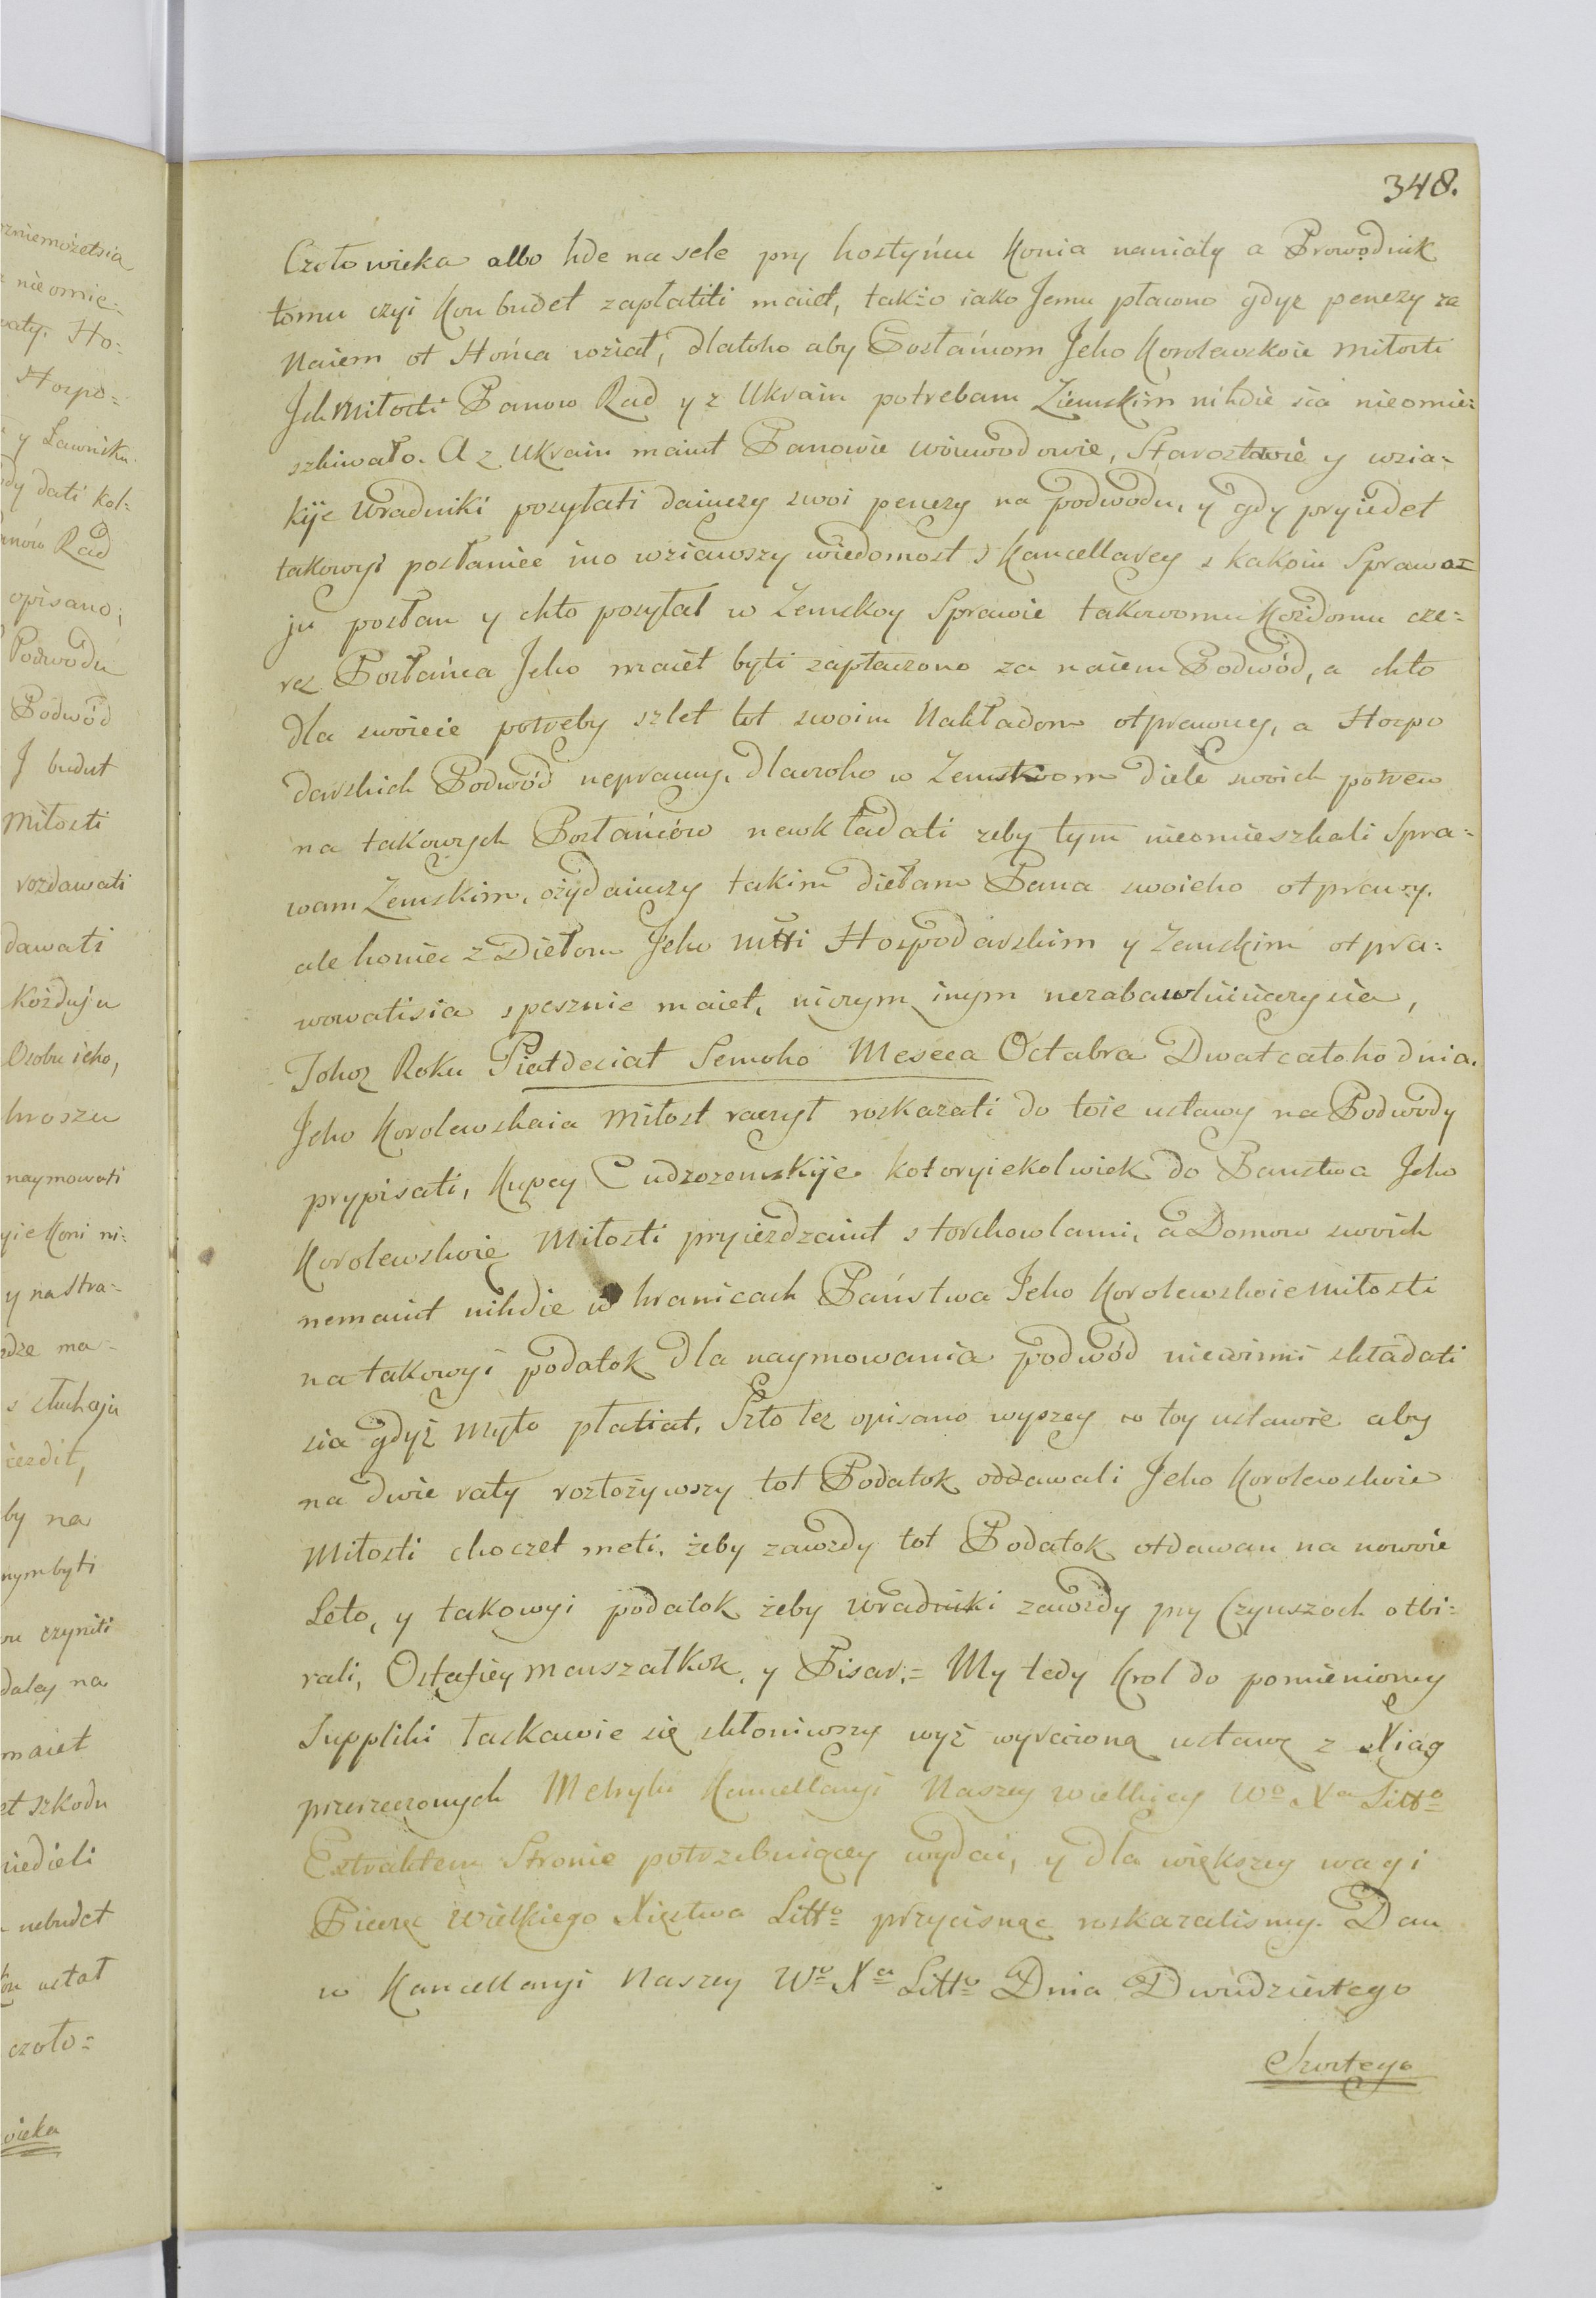 348.
Czołowieka albo hde na sele pry hostyńcu Konia naniały a Prowodnik
tomu czyi Kon budet zapłatiti maiet, takżo iako Jemu płacono gdyż penezy za
Naiem ot Hońca wziął, dlatoho aby Posłańcom Jeho Korolewskoie Miłosti
Jch Miłosti Panow Rad y z Ukrain potrebam Ziemskim nihdie sia nieomie:
szkiwało. A z Ukrain maiut Panowie woiewodowie, Starostowie y wsia-
kije Wradniki posyłati daiuczy swoi penezy na podwodu, y gdy pryiedet
takowyi posłaniec ino wziawszy wiedomost s Kancellarey s kakoiu Sprawo=
ju posłan y chto posyłał w Zemskoy Sprawie takowomu Kożdomu cze=
rez Posłańca Jeho maiet byti zapłaczono za naiem Podwód, a chto
dla swoieie potreby szlet tot swoim Nakładom otprawuy, a Hospo
darskich Podwód neprawuy, dlaczoho w Zemskom diele swoich potreb
na takowych Posłańców newkładati zeby tym nieomieszkali Spra=
wam Zemskim, ożydaiuczy takim diełam Pana swoieho otprawy.
ale honiec z Diełom Jeho Młti Hospodarskim y Zemskim otpra=
wowatisia spesznie maiet, niczym inym nezabawluiuczysia,
Tohoż Roku Piatdesiat Semoho Meseca Octabra Dwatcatoho dnia.
Jeho Korolewskaia Miłost raczył roskazati do toie ustawy na Podwody
prypisati, Kupcy Cudzozemskije kotoryiekolwiek do Panstwa Jeho
Korolewskoie Miłosti pryiezdzaiut s torhowlami, a Domow swoich
nemaiut nihdie w hranicach Państwa Jeho Korolewskoie Miłosti
na takowyi podatok dla naymowania podwód niewinni składati
sia gdyż Myto płatiat, Szto tez opisano wyszey w toy ustawie aby
na dwie raty rozłożywszy tot Podatok oddawali Jeho Korolewskoie
Miłosti choczet meti, żeby zawzdy tot Podatok otdawan na nowoie
Leto, y takowyi podatok żeby wradniki zawzdy pry Czynszoch otbi=
rali, Ostafiey Marszałkok, y Pisar.= My tedy Krol do pomienioney
Suppliki łaskawie się skłoniwszy wyż wyrażoną ustawę z Xiąg
przerzeczonych Metryki Kancellaryi Naszey Wielkiey Wo Xa Litto
Extraktem Stronie potrzebuiącey wydai, y dla większey wagi
Pieczęć Wielkiego Xięstwa Litto przycisnąc roskazalismy. Dan
w Kancellaryi Naszey Wo Xa Litto Dnia Dwudziestego
Szostego